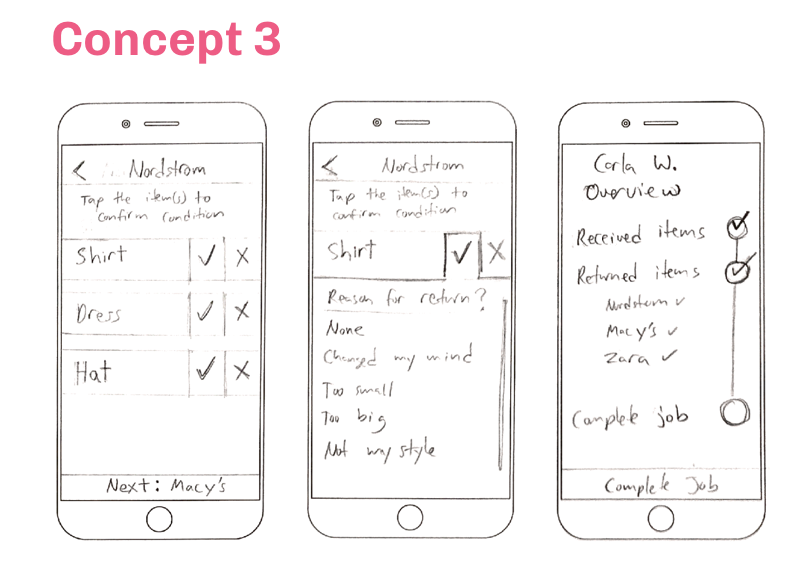 Concept 3
Nordstrom
Tap the item(s) to
confirm condition
Shirt
Dress
Hat
Next: Macy's
Nordstrom
Tap the item(s) to
confirm condition
Shirt
Reason for return?
None
Changed my mind
Too small
Too big
Not my style
Carla W.
Overview
Received items
Returned items
Nordstrom
Macy's
Zara
Complete job
Complete Job